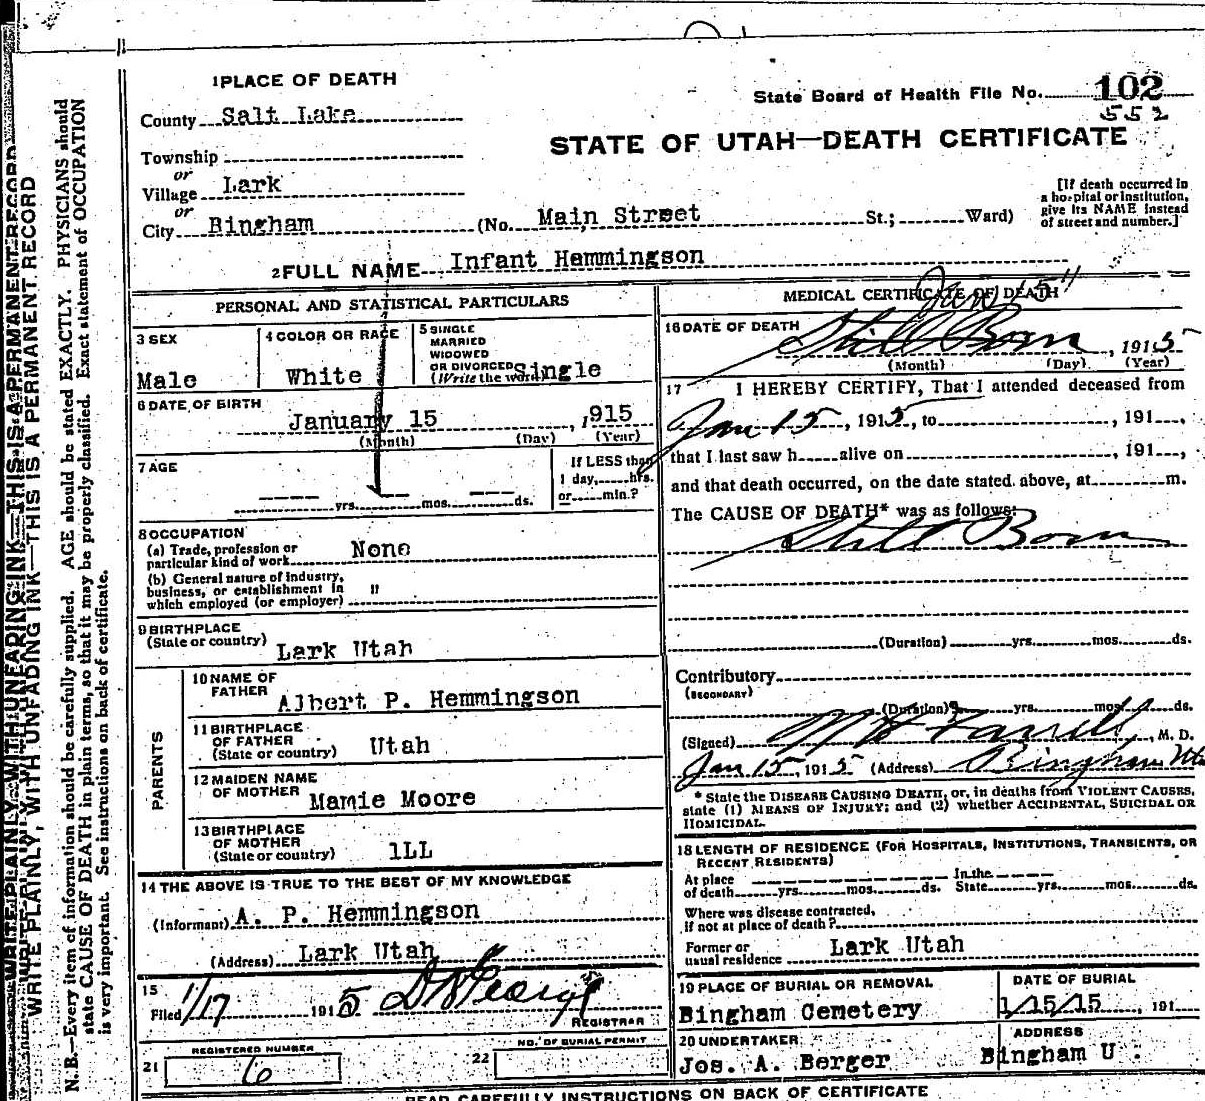 1 PLACE OF DEATH
State Board of Health File No. 102
552
County Salt Lake
STATE OF UTAH—DEATH CERTIFICATE
Township
or
Village Lark
or
City Bingham (No. Main Street St.; Ward)
[If death occurred in
a hospital or institution,
give its NAME instead
of street and number.]
2 FULL NAME Infant Hemmingson
PERSONAL AND STATISTICAL PARTICULARS
3 SEX
Male
4 COLOR OR RACE
White
5 SINGLE
MARRIED
WIDOWED
OR DIVORCED
(Write the word) Single
6 DATE OF BIRTH
January 15, 1915
(Month) (Day) (Year)
7 AGE
yrs. mos. ds.
If LESS than
1 day, hrs.
or min.?
8 OCCUPATION
(a) Trade, profession or
particular kind of work None
(b) General nature of industry,
business, or establishment in
which employed (or employer) "
9 BIRTHPLACE
(State or country) Lark Utah
PARENTS
10 NAME OF
FATHER Albert P. Hemmingson
11 BIRTHPLACE
OF FATHER
(State or country) Utah
12 MAIDEN NAME
OF MOTHER Mamie Moore
13 BIRTHPLACE
OF MOTHER
(State or country) 1LL
14 THE ABOVE IS TRUE TO THE BEST OF MY KNOWLEDGE
(Informant) A. P. Hemmingson
(Address) Lark Utah
15
Filed 1/17 1915
REGISTRAR
REGISTERED NUMBER
21 6
NO. OF BURIAL PERMIT
22
MEDICAL CERTIFICATE OF DEATH
Jan 15"
16 DATE OF DEATH
Still Born, 1915
(Month) (Day) (Year)
17 I HEREBY CERTIFY, That I attended deceased from
Jan 15, 1915, to , 191 ,
that I last saw h alive on , 191 ,
and that death occurred, on the date stated above, at m.
The CAUSE OF DEATH* was as follows:
Still Born
(Duration) yrs. mos. ds.
Contributory
(SECONDARY)
(Duration) yrs. mos. ds.
(Signed) Farrell, M. D.
Jan 15, 1915 (Address) Bingham Uta
* State the DISEASE CAUSING DEATH, or, in deaths from VIOLENT CAUSES,
state (1) MEANS OF INJURY; and (2) whether ACCIDENTAL, SUICIDAL OR
HOMICIDAL.
18 LENGTH OF RESIDENCE (FOR HOSPITALS, INSTITUTIONS, TRANSIENTS, OR
RECENT RESIDENTS)
At place In the
of death yrs. mos. ds. State yrs. mos. ds.
Where was disease contracted,
if not at place of death?
Former or
usual residence Lark Utah
19 PLACE OF BURIAL OR REMOVAL
Bingham Cemetery
DATE OF BURIAL
1/15/15 191
20 UNDERTAKER
Jos. A. Berger
ADDRESS
Bingham U.
READ CAREFULLY INSTRUCTIONS ON BACK OF CERTIFICATE
WRITE PLAINLY, WITH UNFADING INK—THIS IS A PERMANENT RECORD
N. B.—Every item of information should be carefully supplied. AGE should be stated EXACTLY. PHYSICIANS should
state CAUSE OF DEATH in plain terms, so that it may be properly classified. Exact statement of OCCUPATION
is very important. See instructions on back of certificate.